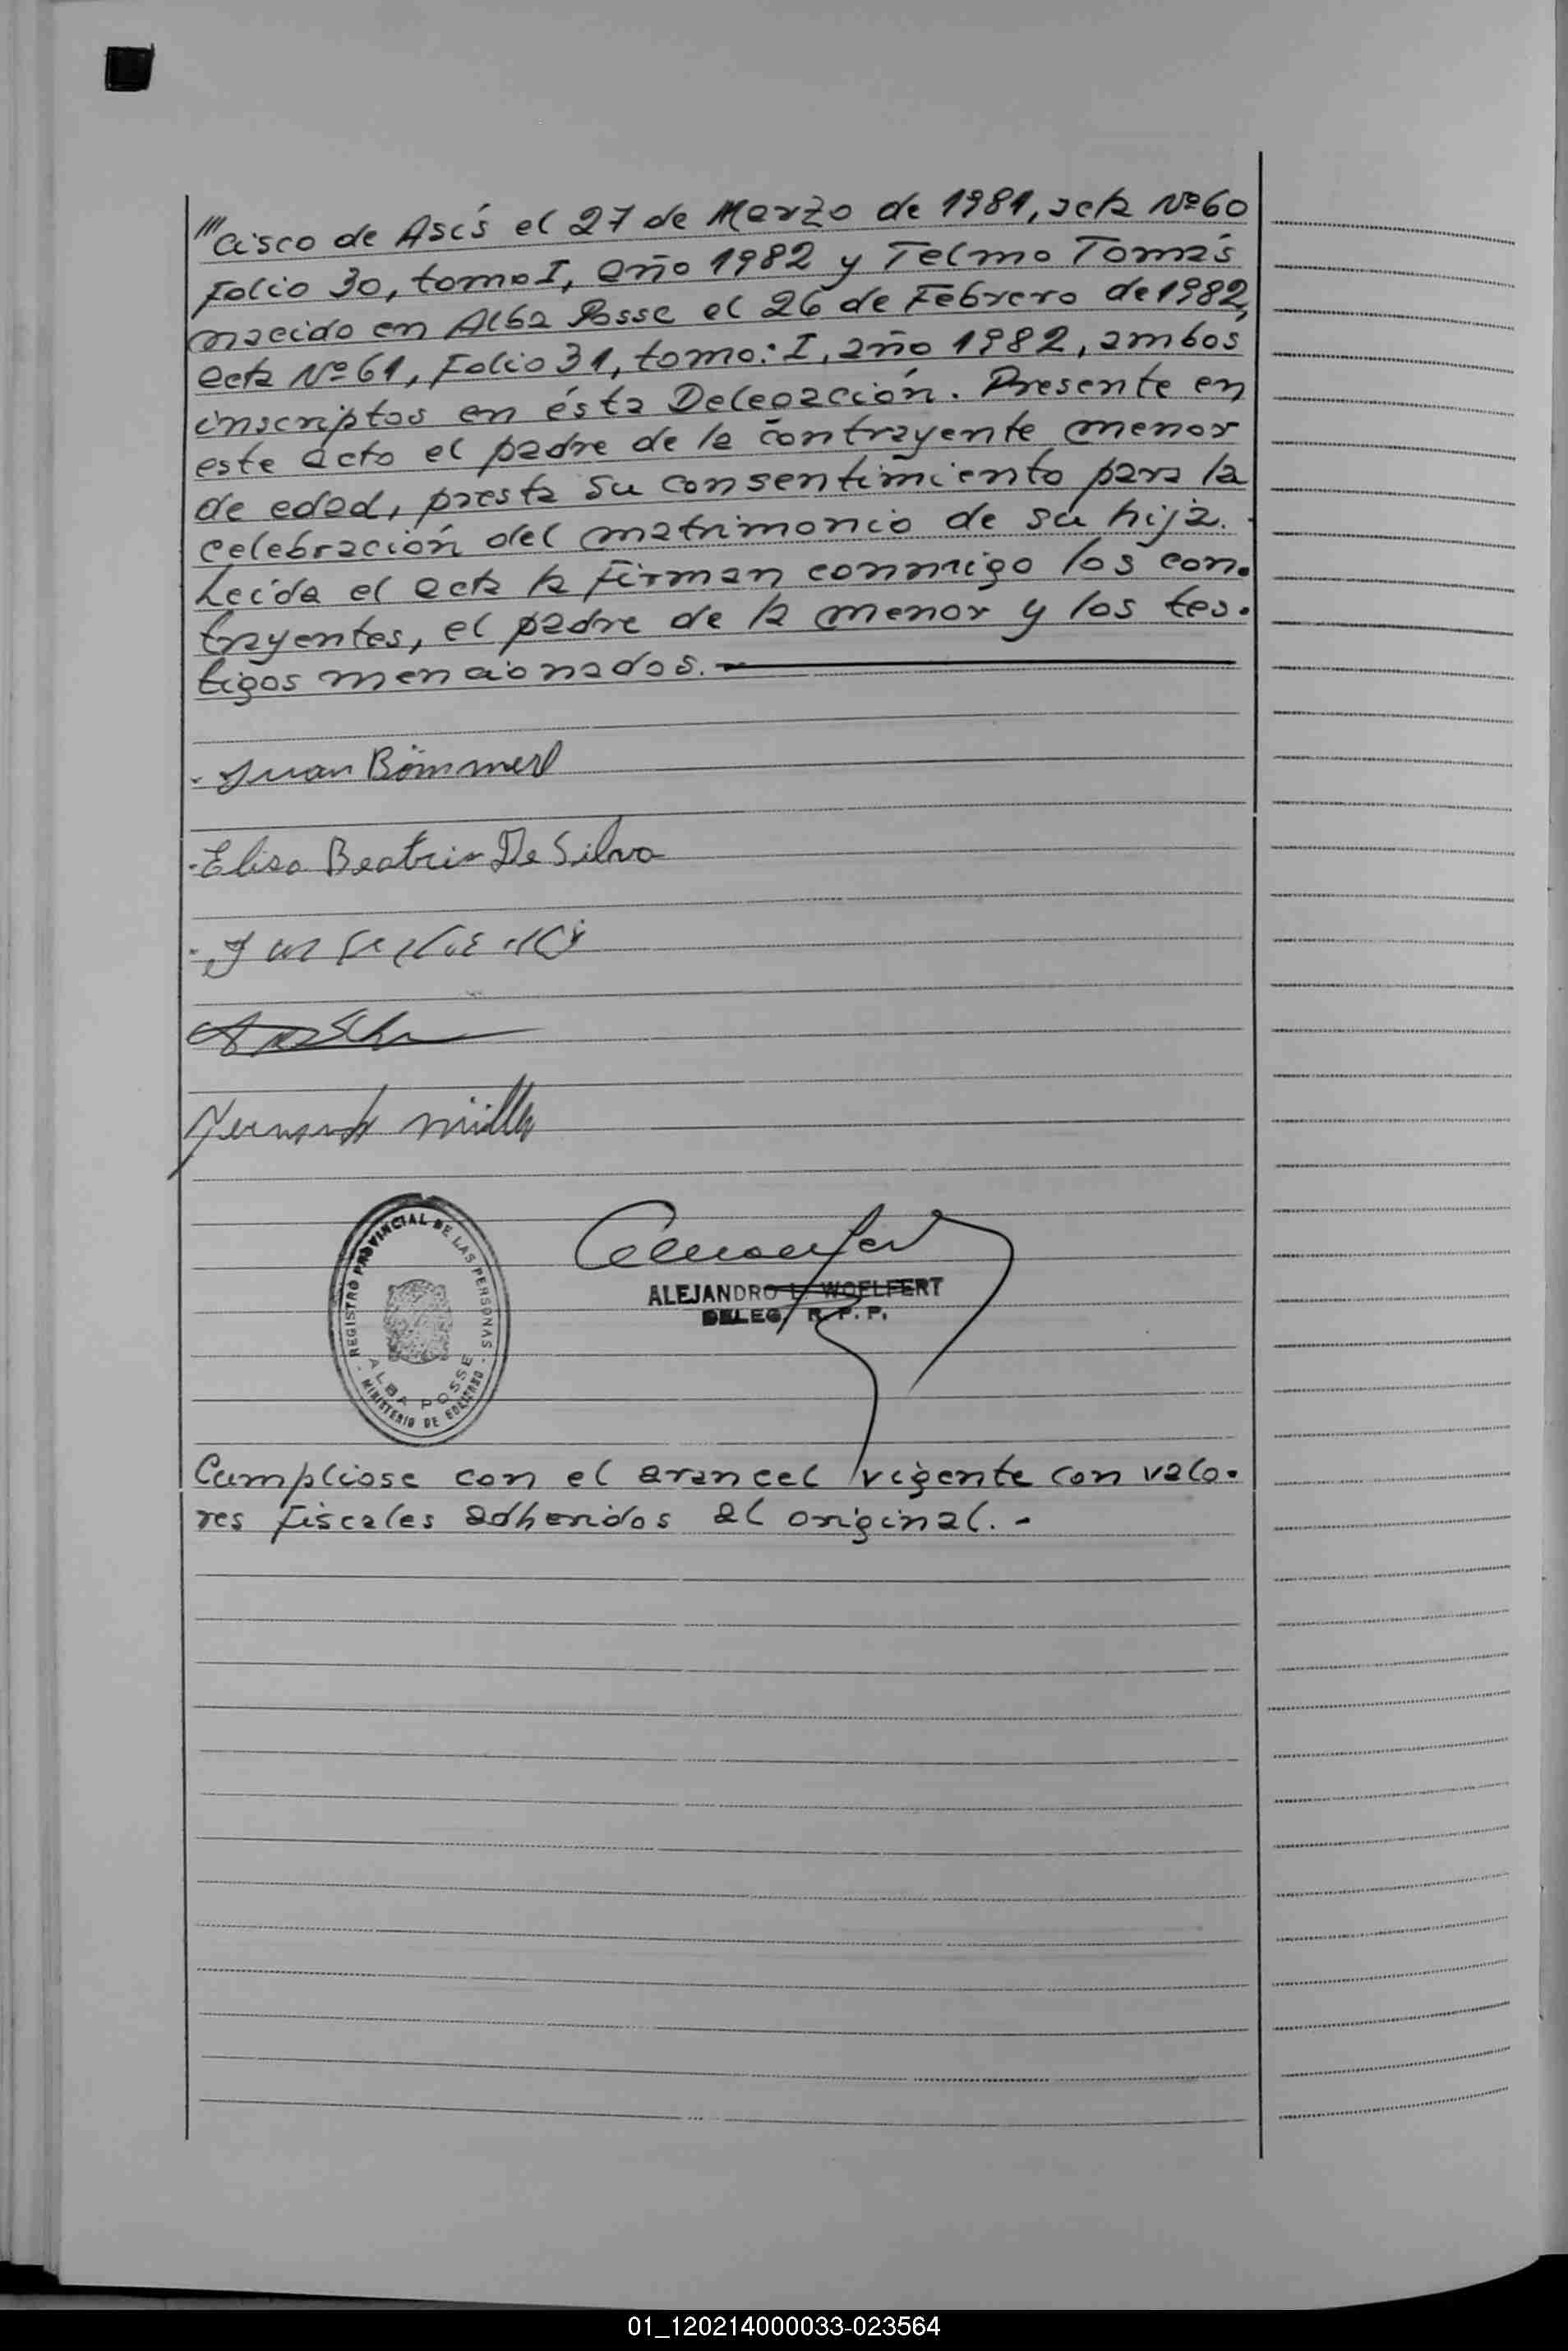 "'cisco de Asís el 27 de Marzo de 1981, acta Nº 60
Folio 30, tomo I, año 1982 y Telmo Tomás
nacido en Alba Posse el 26 de Febrero de 1982,
acta Nº 61, Folio 31, tomo: I, año 1982, ambos
inscriptos en ésta Delegación. Presente en
este acto el padre de la contrayente menor
de edad, presta su consentimiento para la
celebración del matrimonio de su hija.
Leida el acta la firman conmigo los con-
trayentes, el padre de la menor y los tes-
tigos mencionados.
Juan Bömmerl
Elisa Beatriz De Silva
REGISTRO PROVINCIAL DE LAS PERSONAS
ALBA POSSE
MINISTERIO DE GOBIERNO
ALEJANDRO L. WOELFERT
DELEG. R. P. P.
Cumpliose con el arancel vigente con valo-
res fiscales adheridos al original. -
01_120214000033-023564